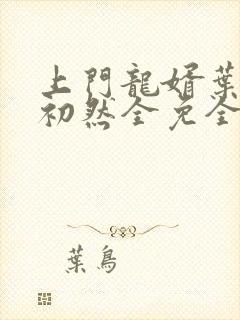 上門龍婿葉
初然全免全
葉鳥